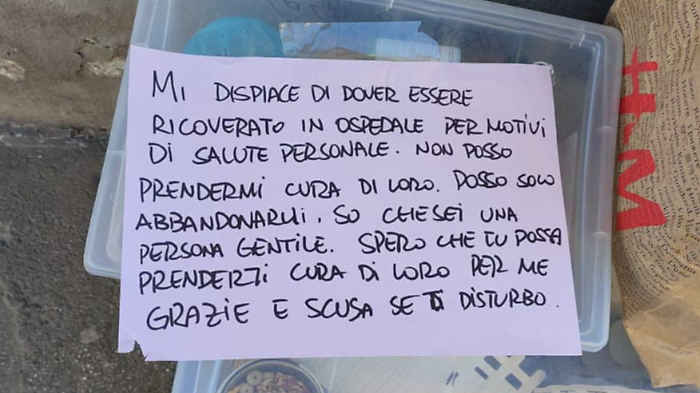 MI DISPIACE DI DOVER ESSERE
RICOVERATO IN OSPEDALE PER MOTIVI
DI SALUTE PERSONALE. NON POSSO
PRENDERMI CURA DI LORO. POSSO SOLO
ABBANDONARLI. SO CHE SEI UNA
PERSONA GENTILE. SPERO CHE TU POSSA
PRENDERTI CURA DI LORO PER ME
GRAZIE E SCUSA SE TI DISTURBO.
H&M